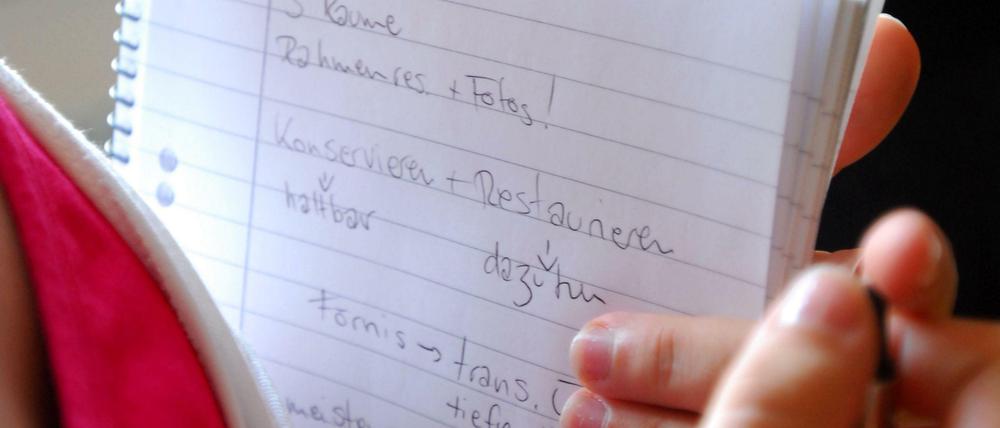 3 Räume
Rahmenres. + Fotos!
Konservieren + Restaurieren
haltbar
dazutun
Firnis → trans.